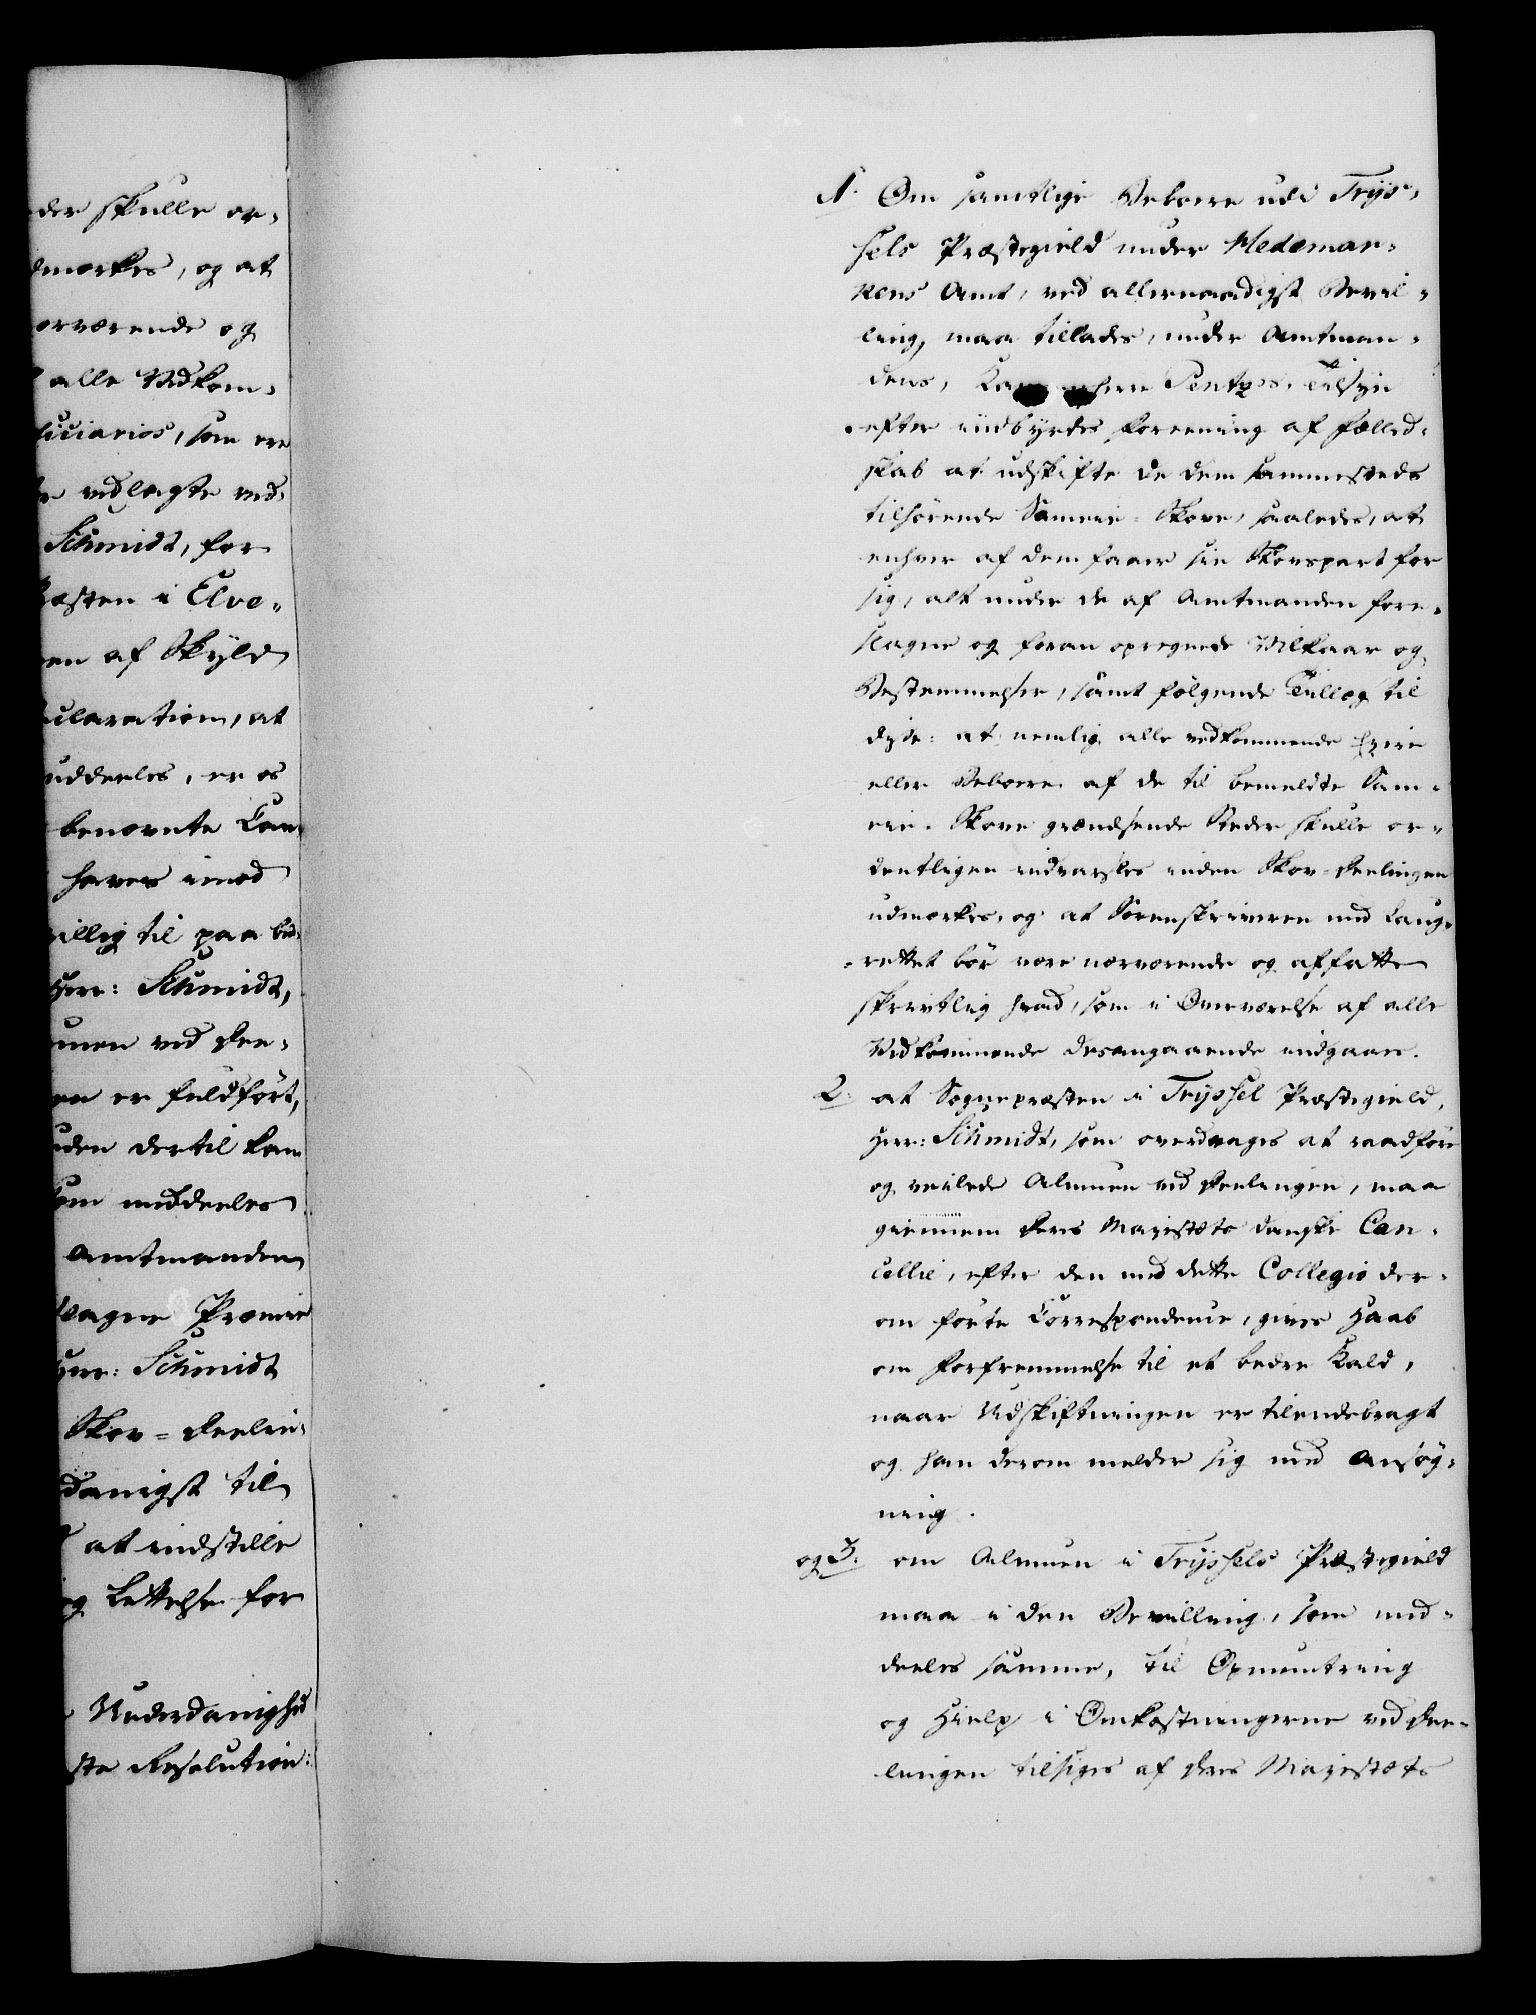 der skulle or-
dmærkes, og at
ærværende og
alle Vedkom-
ficiarios, som ere
vedlagte ved-
Schmidt, for
Præsten i Elve-
en af Skyld
claration, at
uddeeles, er os
benævnte Can-
haves imod
villig til paa bed-
Herr: Schmidt,
muen ved Dee-
en er fuldført,
uden dertil kom
som meddeeles
Amtmanden
slagne Præmie
Herr: Schmidt
Skov-Deelin-
danigst til
at indstille
og Lettelse for
Underdanighed
ste Resolution:
1. Om samtlige Beboere udi Trys-
sels Præstegield under Hedemar-
kens Amt, ved allernaadigst Bevil-
ling, maa tillades, under Amtman-
dens, Kammerherre Pentz's, Tilsyn
efter indbyrdes Foreening af Fælled-
skab at udskifte de dem sammesteds
tilhørende Sameie-Skove, saaledes, at
enhver af dem faaer sin Skovspart for
sig, alt under de af Amtmanden fore-
slagne og foran opregnede Vilkaar og
Bestemmelser, samt følgende Tillæg til
disse: at nemlig alle vedkommende Eiere
eller Beboere af de til bemeldte Sam-
eie-Skove grændsende Steder skulle or-
dentligen indvarsles inden Skov-Deelingen
udmærkes, og at Sorenskriveren med Laug-
rettet bør være nærværende og affatte
skriftlig hvad, som i Overværelse af alle
Vedkommende desangaaende indgaaes.
2. at Sognepræsten i Tryssel Præstegield,
Herr: Schmidt, som overdrages at raadføre
og veilede Almuen ved Deelingen, maa
giennem Deres Majestæts danske Can-
cellie, efter den med dette Collegio der-
om førte Correspondence, gives Haab
om Forfremmelse til et bedre Kald,
naar Udskiftningen er tilendebragt
og han derom melder sig med Ansøg-
ning.
og 3. om Almuen i Tryssels Præstegield
maa i den Bevilling, som med-
deeles samme, til Opmuntring
og Hielp i Omkostningerne ved Dee-
lingen tilsiges af Deres Majestæts